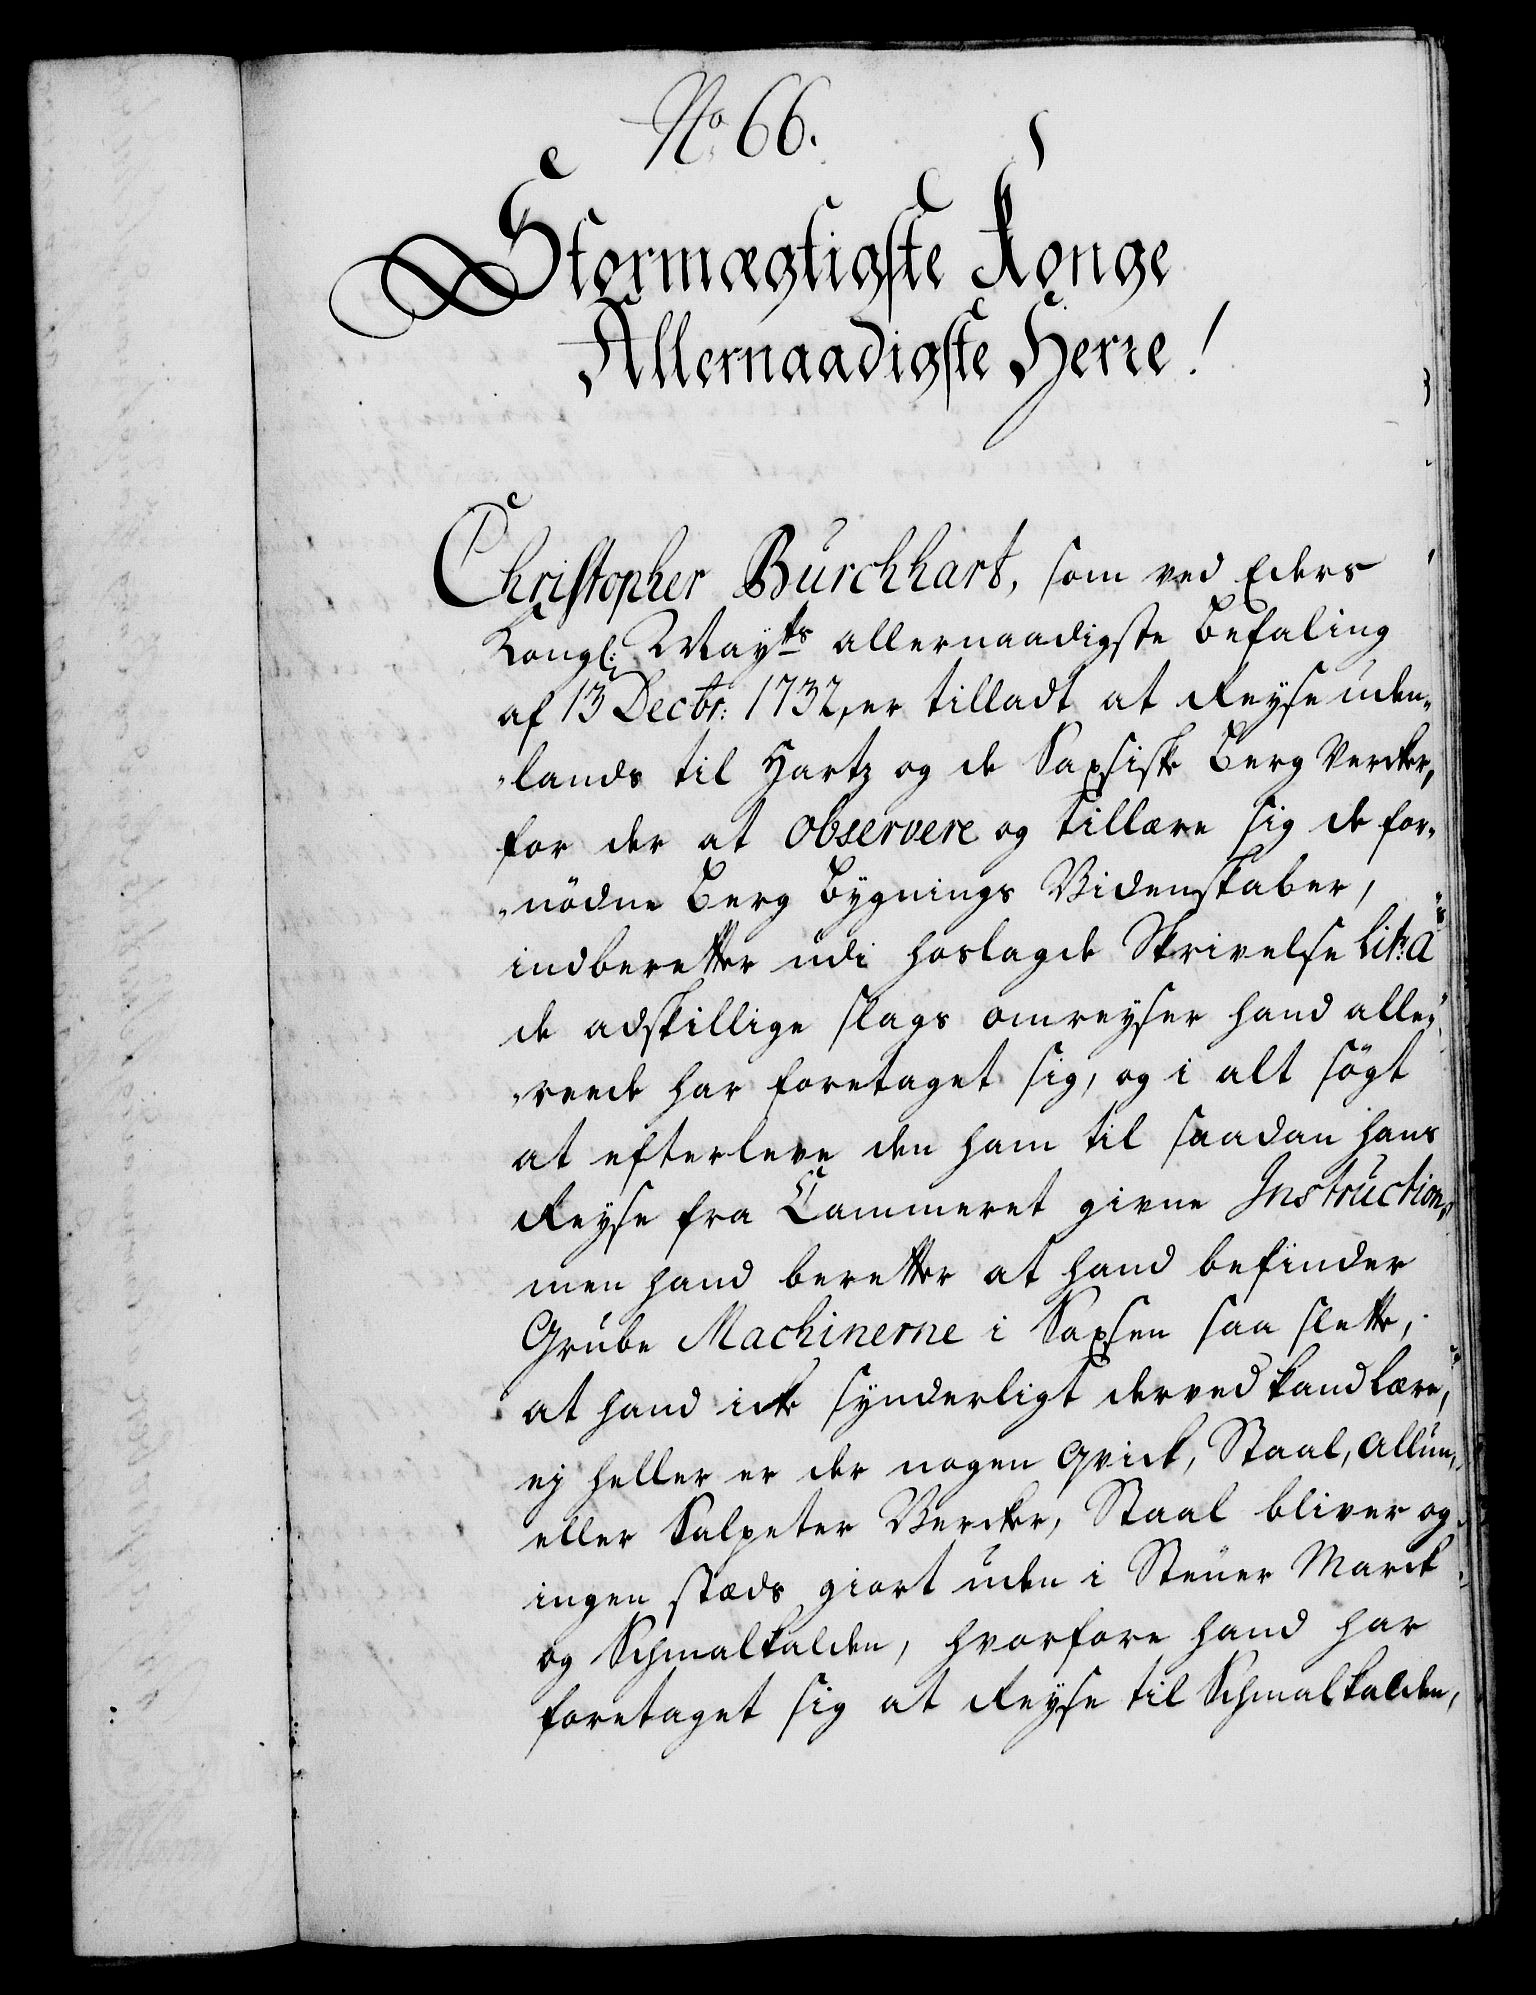 No 66.
Stormægtigste Konge
Allernaadigste Herre!
Christopher Burchhart, som ved Eders
Kongl: Mayts allernaadigste Befaling
af 13 Decbr: 1732, er tilladt at Reyse uden-
-lands til Hartz og de Saxsiske Berg Vercker,
for der at observere og tillære sig de for-
-nödne Berg Bygnings Videnskaber,
indberetter udi hoslagde Skrivelse Litr: a
de adskillige slags omreyser hand alle-
-reede har foretaget sig, og i alt sögt
at efterleve den ham til saadan hans
Reyse fra Cammeret givne Instruction,
men hand beretter at hand befinder
Grube Machinerne i Saxsen saa slette,
at hand icke synderligt derved kand lære,
ej heller er der nogen Qvick, Staal, Allun,
eller Salpeter Vercker, Staal bliver og
ingen stæds giort uden i Steuer Marck
og Schmalkalden, hvorfore hand har
foretaget sig at Reyse til Schmalkalden,